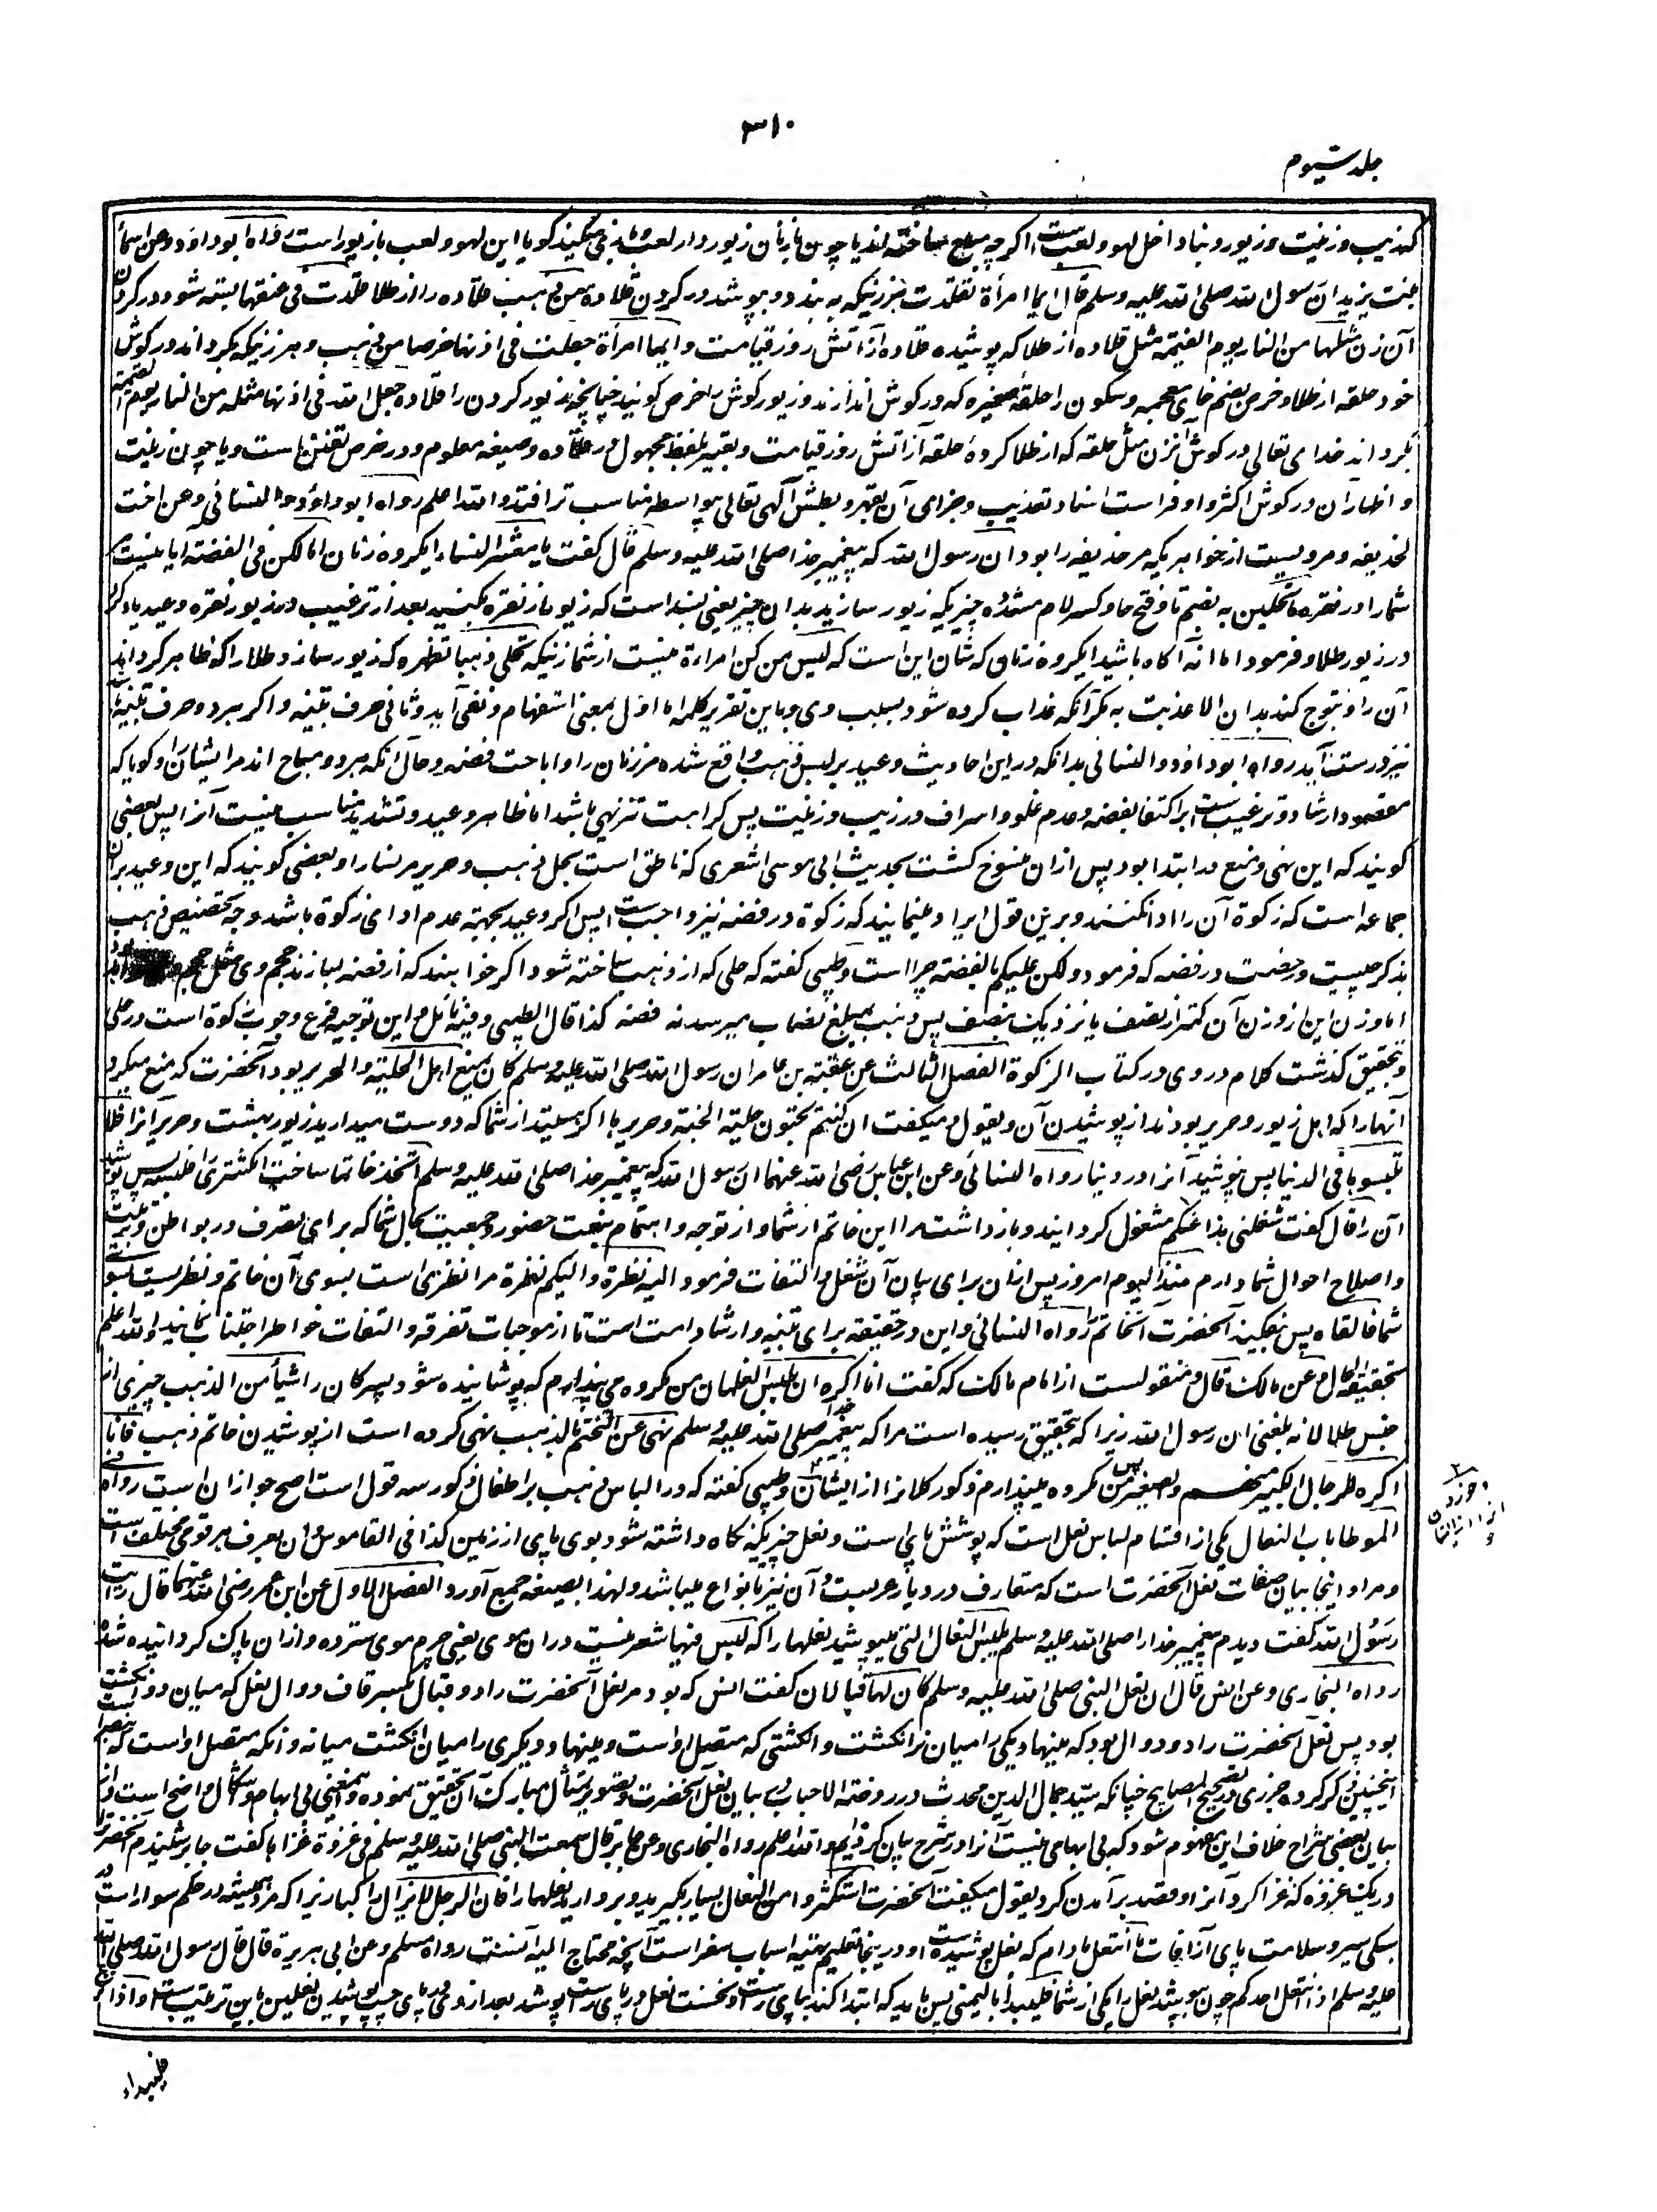 ۳۱۰
جلد سیوم
که زیب و زینت و زیور دنیا داخل لهو و لعب ست اگرچه مباح ساخته اند یا چون بازنان زیوردار لعب و بازی میکنند گویا این لهو و لعب با زیور است رواه ابو داود وعن اسماء
بنت یزید ان رسول الله صلی الله علیه وسلم قال ایما امرأة تقلدت هر زنیکه به بندد و بپوشد در گردن قلادة من ذهب قلاده را از طلا قلدت فی عنقها بسته شود در گردن
آن زن مثلها من النار یوم القیمة مثل قلاده از طلا که پوشیده قلاده از آتش روز قیامت وایما امرأة جعلت فی اذنها خرصا من ذهب و هر زنیکه بگرداند در گوش
خود حلقه از طلا و خرص بضم خای معجمه و سکون را حلقهٔ صغیره که در گوش اندازند و زیور گوش را خرص گویند چنانچه زیور گردن را قلاده جعل الله فی اذنها مثله من النار یوم القیمة
بگرداند خدای تعالی در گوش آنزن مثل حلقه که از طلا کرده حلقه از آتش روز قیامت و تعبیر بلفظ مجهول در قلاده و صیغه معلوم در خرص تفنن ست و یا چون زینت
و اظهار آن در گوش اکثر و اوفر است اسناد تعذیب و جزای آن بقهر و بطش آلهی تعالی بیواسطه مناسب تر افتد والله اعلم رواه ابو داؤد والنسائی وعن اخت
لحذیفة و مرویست از خواهریکه مر حذیفه را بود ان رسول الله که پیغمبر خدا صلی الله علیه وسلم قال گفت یا معشر النساء ای گروه زنان اما لکن فی الفضة آیا نیست
شما را در نقره ما تحلین به بضم تا و فتح حا و کسر لام مشدده چیزیکه زیور سازید بدان چیز یعنی بسند است که زیور از نقره بکنید بعد از ترغیب در زیور نقره وعید یاد کرد
در زیور طلا و فرمود اما انه آگاه باشید ای گروه زنان که شان این است که لیس منکن امرأة نیست از شما زنیکه تحلی ذهبا تظهره که زیور سازد طلا را که ظاهر گرداند
آن را و تبرج کند بدان الا عذبت به مگر آنکه عذاب کرده شود بسبب وی و باین تقریر کلمه اما اول بمعنی استفهام و نفی آید و ثانی حرف تنبیه و اگر هر دو حرف تنبیه باشد
نیز درست آید رواه ابو داؤد والنسائی بدانکه در این احادیث وعید بر لبس ذهب واقع شده مر زنان را و اباحت فضه و حال آنکه هر دو مباح اند مر ایشان را و گویا که
مقصود ارشاد و ترغیب ست بر اکتفا بفضه و عدم غلو و اسراف در زیب و زینت پس کراهت تنزیهی باشد اما ظاهر وعید و تشدید مناسب نیست آنرا پس بعضی
گویند که این نهی و منع در ابتدا بود پس ازان منسوخ گشت بحدیث ابی موسی اشعری که ناطق است بحل ذهب و حریر مر نسا را و بعضی گویند که این وعید بران
جماعه است که زکوة آن را ادا نکنند و برین قول ایراد مینمایند که زکوة در فضه نیز واجب ست پس اگر وعید بجهت عدم ادای زکوة باشد وجه تخصیص ذهب
بذکر چیست و رخصت در فضه که فرمود ولکن علیکم بالفضة چرا است و طیبی گفته که حلی که از ذهب ساخته شود اگر خواهند که از فضه بسازند حجم وی مثل حجم
اما وزن این از وزن آن کمتر از نصف یا نزدیک بنصف پس ذهب بمبلغ نصاب میرسد نه فضه کذا قال الطیبی وفیه تأمل و این توجیه فرع وجوب زکوة است در حلی
و تحقیق گذشت کلام در وی در کتاب الزکوة الفصل الثالث عن عقبة بن عامر ان رسول الله صلی الله علیه وسلم کان یمنع اهل الحلیة والحریر بود آنحضرت که منع میکرد
آنها را که اهل زیور و حریر بودند از پوشیدن آن ویقول و میگفت ان کنتم تحبون حلیة الجنة وحریرها اگر هستید از شما که دوست میدارید زیور بهشت و حریر آنرا فلا
تلبسوها فی الدنیا پس نپوشید آنرا در دنیا رواه النسائی وعن ابن عباس رضی الله عنهما ان رسول الله که پیغمبر خدا صلی الله علیه وسلم اتخذ خاتما ساخت انگشتری را فلبسه پس پوشید
آن را قال گفت شغلنی هذا عنکم مشغول گردانید و بازداشت مرا این خاتم از شما و از توجه و اهتمام بنعت حضور و جمعیت بحال شما که برای تصرف در بواطن و تربیت
و اصلاح احوال شما دارم منذ الیوم امروز پس ازان برای بیان آن شغل و التفات فرمود الیه نظرة والیکم نظرة مرا نظری است بسوی آن خاتم و نظریست بسوی
شما فالقاه پس بفکند آنحضرت آنخاتم را رواه النسائی و این در حقیقه برای تنبیه و ارشاد امت است تا از موجبات تفرقه و التفات خواطر اجتناب نمایند والله اعلم
بحقیقة الحال وعن مالک قال و منقولست از امام مالک که گفت انا اکره ان یلبس الغلمان من مکروه می پندارم که پوشانیده شود پسرکان را شیأ من الذهب چیزی از
جنس طلا لانه بلغنی ان رسول الله زیرا که بتحقیق رسیده است مرا که پیغمبر خدا صلی الله علیه وسلم نهی عن التختم بالذهب نهی کرده است از پوشیدن خاتم ذهب فانا
اکره للرجال الکبیر منهم والصغیر پس من مکروه میپندارم ذکور کلانرا از ایشان و طیبی گفته که در الباس ذهب بر اطفال ذکور سه قول است اصح جواز ان است رواه فی
الموطا باب النعال یکی از اقسام لباس نعل است که پوشش پای است و نعل چیزیکه نگاه داشته شود بوی پای از زمین کذا فی القاموس و ان بعرف هر قومی مختلف است
و مراد اینجا بیان صفات نعل آنحضرت است که متعارف در دیار عرب ست و آن نیز بانواع میباشد و لهذا بصیغه جمع آورد الفصل الاول عن ابن عمر رضی الله عنهما قال رأیت
رسول الله گفت دیدم پیغمبر خدا را صلی الله علیه وسلم یلبس النعال التی میپوشید نعلها را که لیس فیها شعر نیست دران موی یعنی چرم موی سترده و ازان پاک گردانیده شده
رواه البخاری وعن انس قال ان نعل النبی صلی الله علیه وسلم کان لها قبالان گفت انس که بود مر نعل آنحضرت را دو قبال بکسر قاف دوال نعل که میان دو انگشت است
بود پس نعل آنحضرت را دو دوال بود که مینهاد یکی را میان نر انگشت و انگشتی که متصل اوست و مینهاد دیگری را میان انگشت میانه و آنکه متصل اوست که بنصر است
اینچنین ذکر کرده جزری در تصحیح المصابیح چنانکه سید جمال الدین محدث در روضة الاحباب بیان نعل آنحضرت و تصویر تمثال مبارک آن تحقیق نموده و بمعنی بی ابهام و اشکال واضح است و از
بیان بعضی شراح خلاف این مفهوم شود که بی ابهامی نیست آنرا در شرح بیان کرده ایم والله اعلم رواه البخاری وعن جابر قال سمعت النبی صلی الله علیه وسلم فی غزوة غزاها گفت جابر شنیدم آنحضرت
در یک غزوه که غزا کرد آنرا و قصد برآمدن کرد یقول میگفت آنحضرت استکثروا من النعال بسیار بگیرید و بردارید نعلها را فان الرجل لا یزال راکبا زیرا که مرد همیشه در حکم سوار است
سبکی سیر و سلامت پای از آفات ما انتعل مادام که نعل پوشیده ست و درینجا تعلیم تهیه اسباب سفر است آنچه محتاج الیه آنست رواه مسلم وعن ابی هریرة قال قال رسول الله صلی الله
علیه وسلم اذا انتعل احدکم چون بپوشد نعل را یکی از شما فلیبدأ بالیمنی پس باید که ابتدا کند بپای راست و نخست نعل در پای راست پوشد بعد ازو در پای چپ پوشیدن نعلین باین ترتیب ست واذا نزع
فلیبدأ